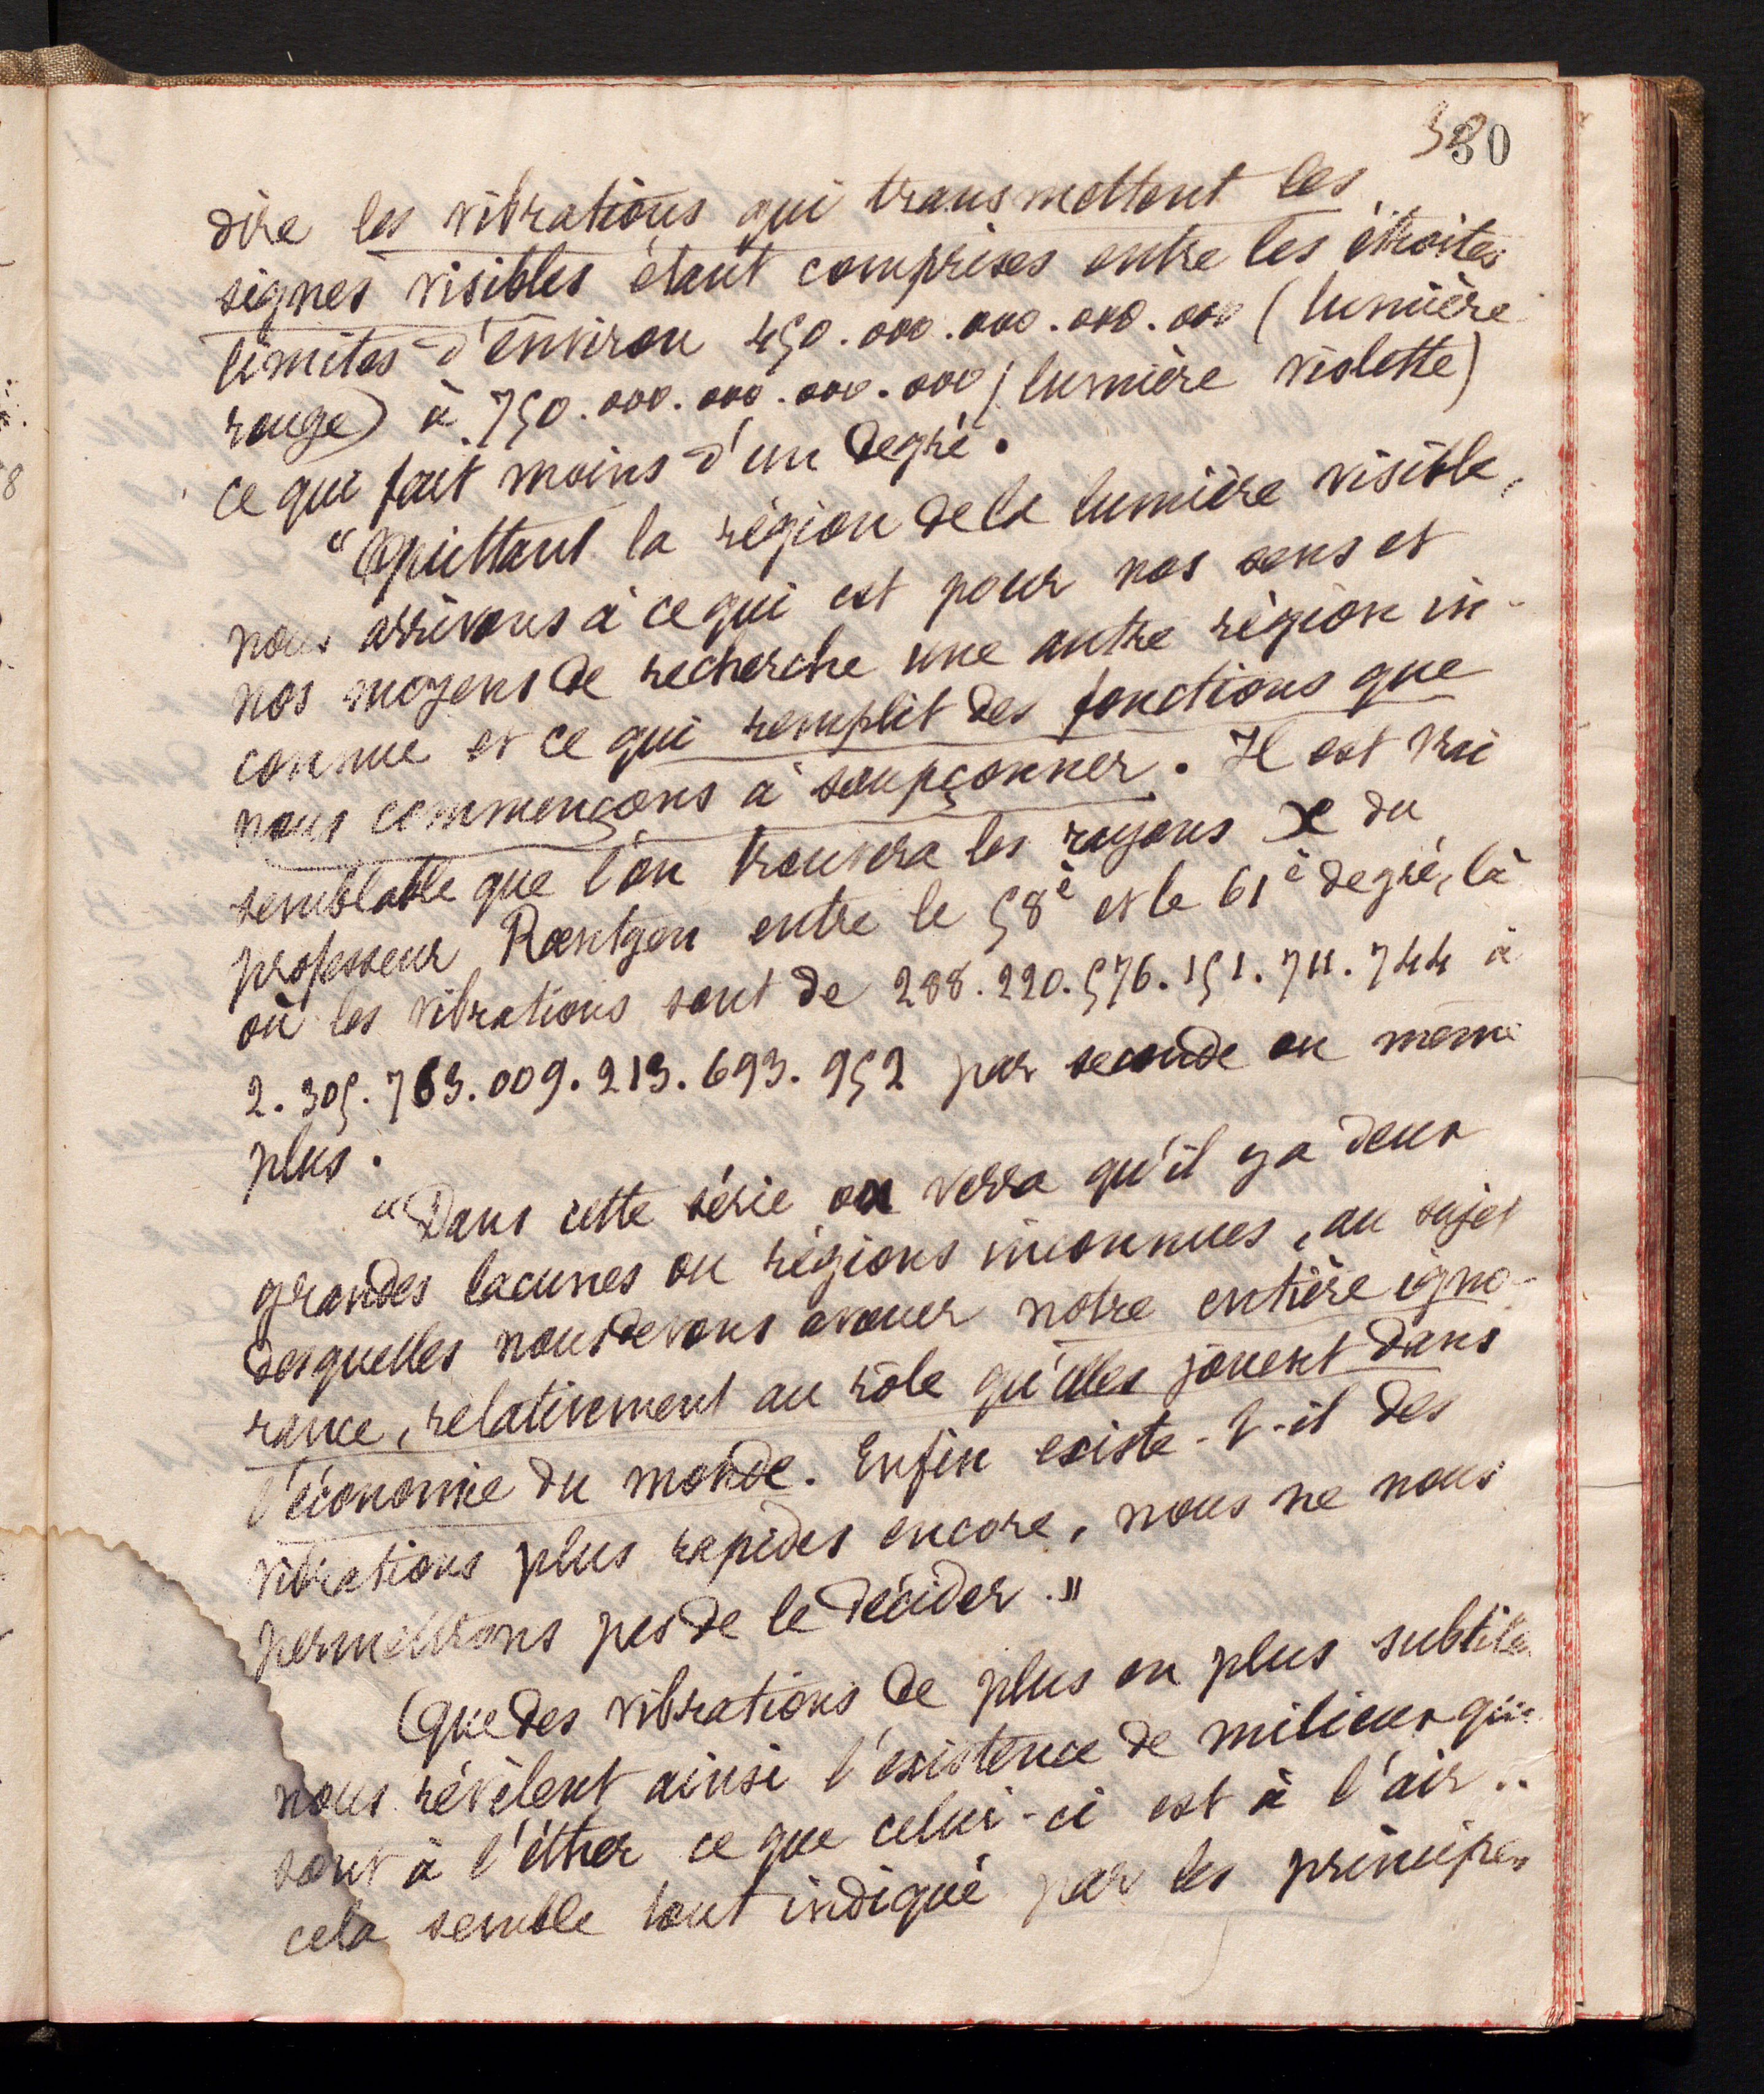 30
dire les vibrations qui transmettent les
signes visibles étant comprises entre les étroites
limites d'environ 450.000.000.000.000 (lumière
rouge) à 750.000.000.000.000 (lumière violette)
ce qui fait moins d'un degré.
"Quittant la région de la lumière visible,
nous arrivons à ce qui est pour nos sens et
nos moyens de recherche une autre région in-
connue et ce qui remplit des fonctions que
nous commençons à soupçonner. Il est vrai
semblable que l'on trouvera les rayons X du
professeur Rœntgen entre le 58è et le 61è degré, là
où les vibrations sont de 288.220.576.151.711.744 à
2.305.763.009.213.693.952 par seconde ou même
plus.
"Dans cette série on verra qu'il y a deux
grandes lacunes ou régions inconnues, au sujet
desquelles nous devons avouer notre entière igno-
rance, relativement au rôle qu'elles jouent dans
l'économie du monde. Enfin existe-t-il des
vibrations plus rapides encore, nous ne nous
permettrons pas de le décider."
Que des vibrations de plus en plus subtiles
nous révèlent ainsi l'existence de milieux qui
sont à l'éther ce que celui-ci est à l'air..
cela semble tout indiqué par les principes